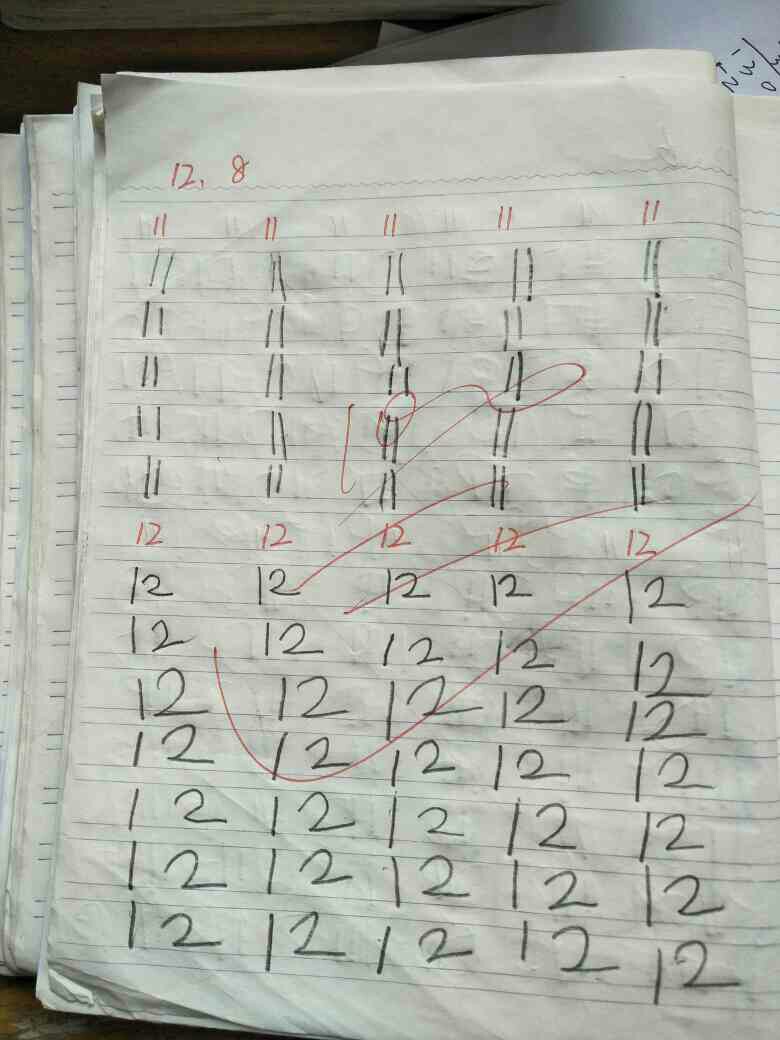 12. 8
11 11 11 11 11
11 11 11 11 11
11 11 11 11 11
11 11 11 11 11
11 11 11 11 11
11 11 11 11 11
12 12 12 12 12
12 12 12 12 12
12 12 12 12 12
12 12 12 12 12
12 12 12 12 12
12 12 12 12 12
12 12 12 12 12
12 12 12 12 12